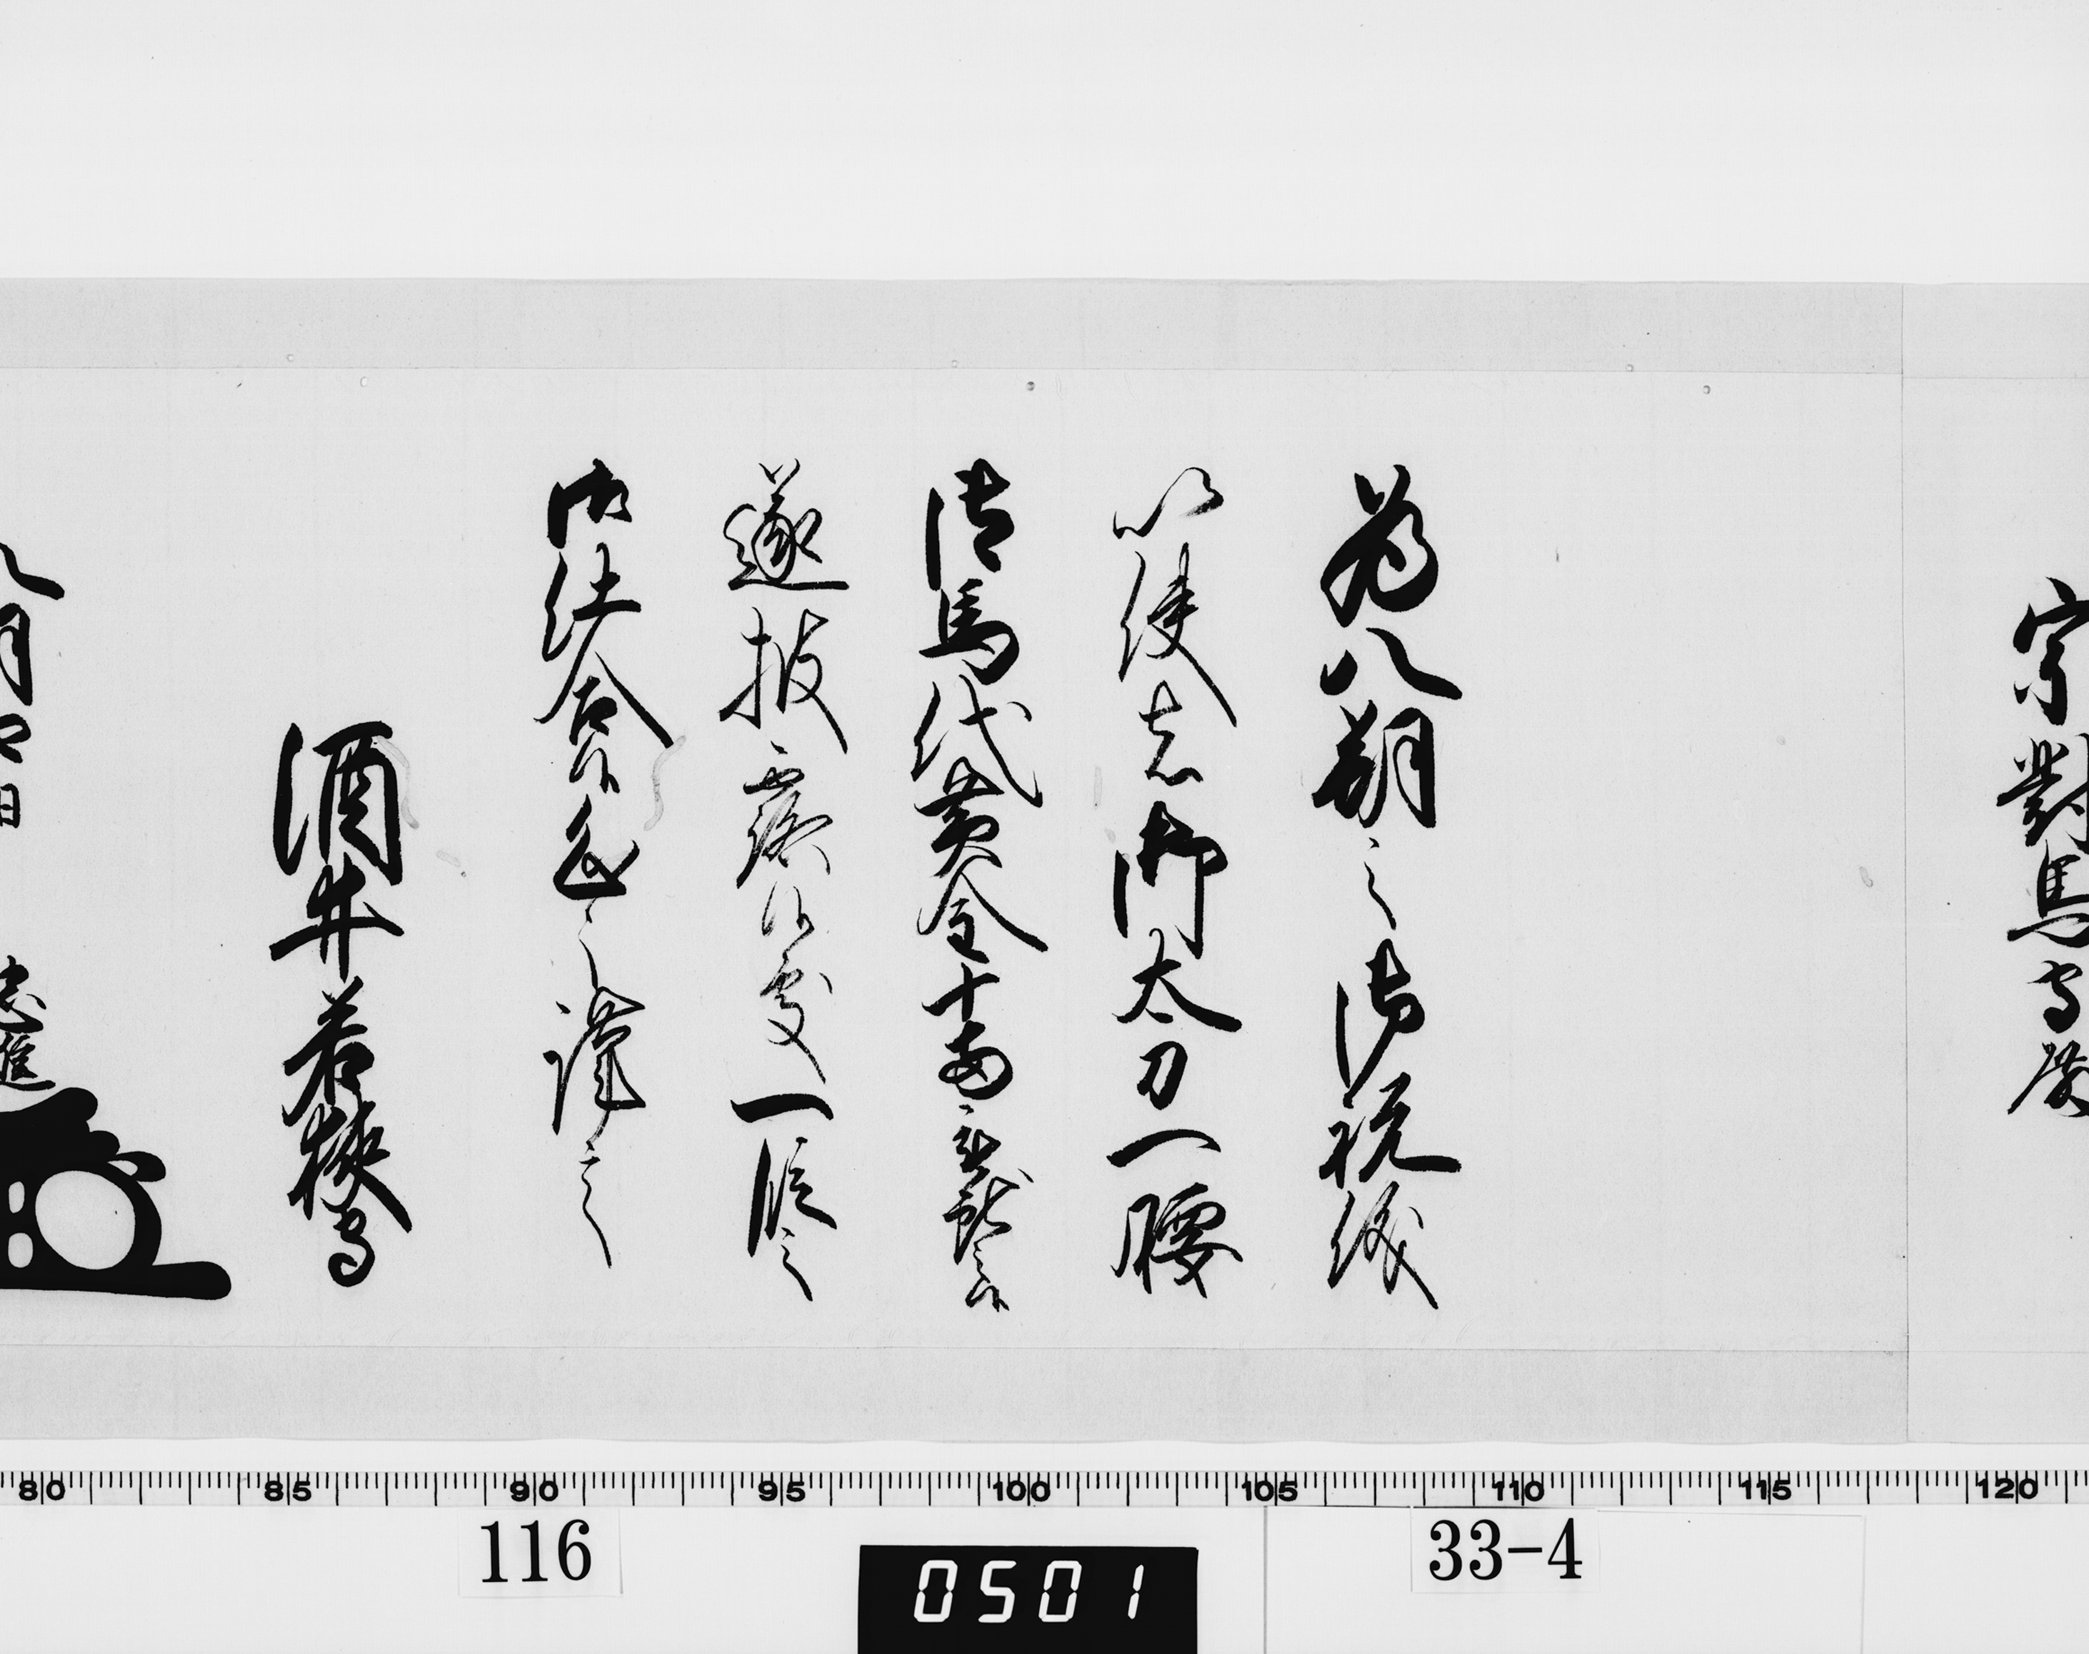 宗對馬守殿
為八朔之御祝儀
以使者御太刀一腰
御馬代黄金十両被献之候
遂披露候處一段之
御仕合候恐々謹言
酒井若狭守
八月四日
忠進
80 85 90 95 100 105 110 115 120
116
0501
33-4